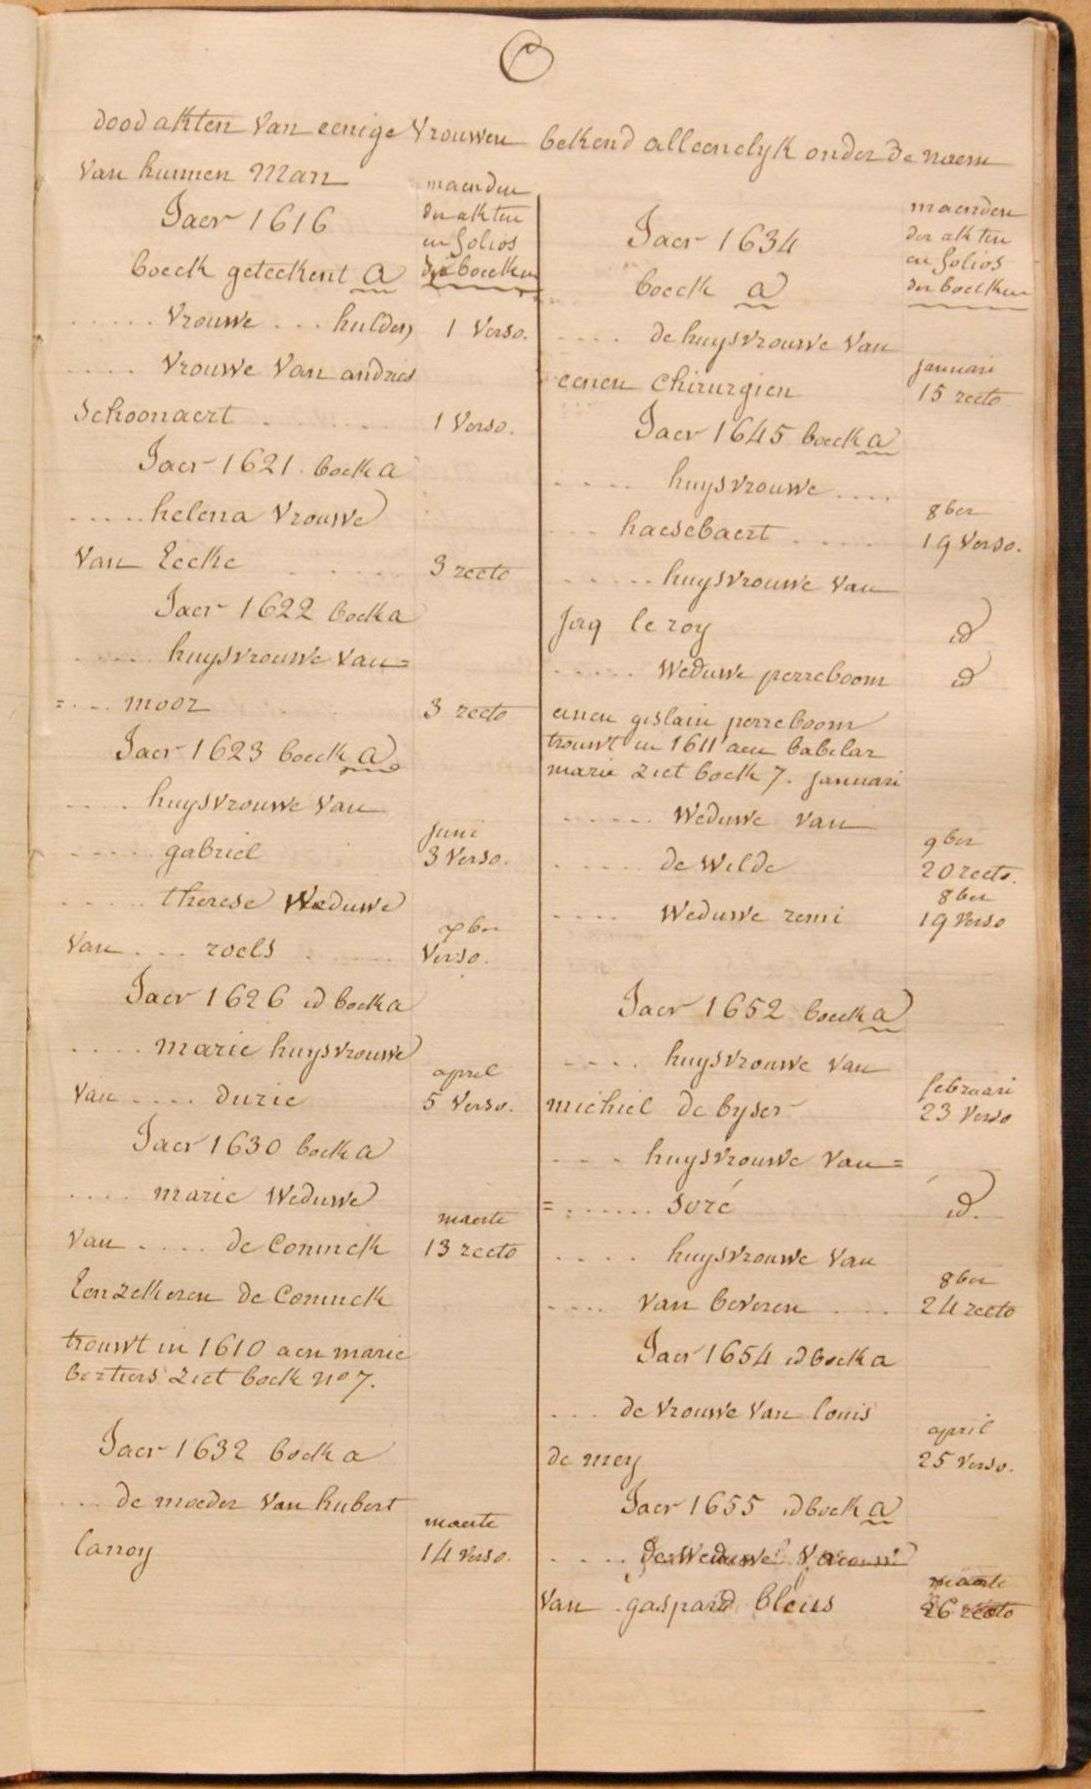 dood akten van eenige vrouwen bekend alleenelyk onder de naem
van hunnen man
maenden
der akten
en folios
der boecken
Jaer 1616
boeck geteekent a
..... vrouwe ... hulder 1 verso.
.... vrouwe van andries
schoonaert ....... 1 verso.
Jaer 1621. boek a
..... helena vrouwe
van Eecke ...... 3 recto
Jaer 1622 boek a
..... huysvrouwe van =
= ... moor 3 recto
Jaer 1623 boeck a
.... huysvrouwe van
juni
..... gabriel 3 verso.
..... therese weduwe
van ... roels ...... verso.
Jaer 1626 id boek a
.... marie huysvrouwe
april
van .... durie 5 verso.
Jaer 1630 boek a
.... marie weduwe
maerte
van .... de Coninck 13 recto
Eenzekeren de Coninck
trouwt in 1610 aen marie
bertiers ziet boek no 7.
Jaer 1632 boek a
... de moeder van hubert
maerte
lanoy 14 verso.
maenden
der akten
en folios
der boecken
Jaer 1634
boeck a
.... de huysvrouwe van
januari
eenen chirurgien 15 recto
Jaer 1645 boeck a
.... huysvrouwe ....
8ber
... haesebaert ..... 19 verso.
..... huysvrouwe van
jaq le roy id
..... weduwe perreboom id
eenen gislain perreboom
trouwt in 1611 aen babelar
marie ziet boek 7. januari
..... weduwe van
9ber
.... de Wilde 20 recto.
8ber
.... weduwe remi 19 verso
Jaer 1652 boeck a
.... huysvrouwe van
februari
michiel de byser 23 verso
... huysvrouwe van =
= ...... soré id.
.... huysvrouwe van
8ber
.... van beveren .... 24 recto
Jaer 1654 id boek a
... de vrouwe van louis
april
de mey 25 verso.
Jaer 1655 id boek a
.... De Weduwe
maerte
van gaspard bleus 26 recto